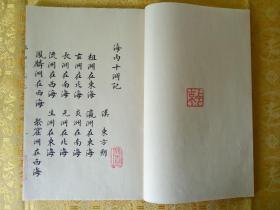 海內十洲記
漢 東方朔
祖洲在東海 瀛洲在東海
玄洲在北海 炎洲在南海
長洲在南海 元洲在北海
流洲在西海 生洲在東海
鳳麟洲在西海 聚窟洲在西海